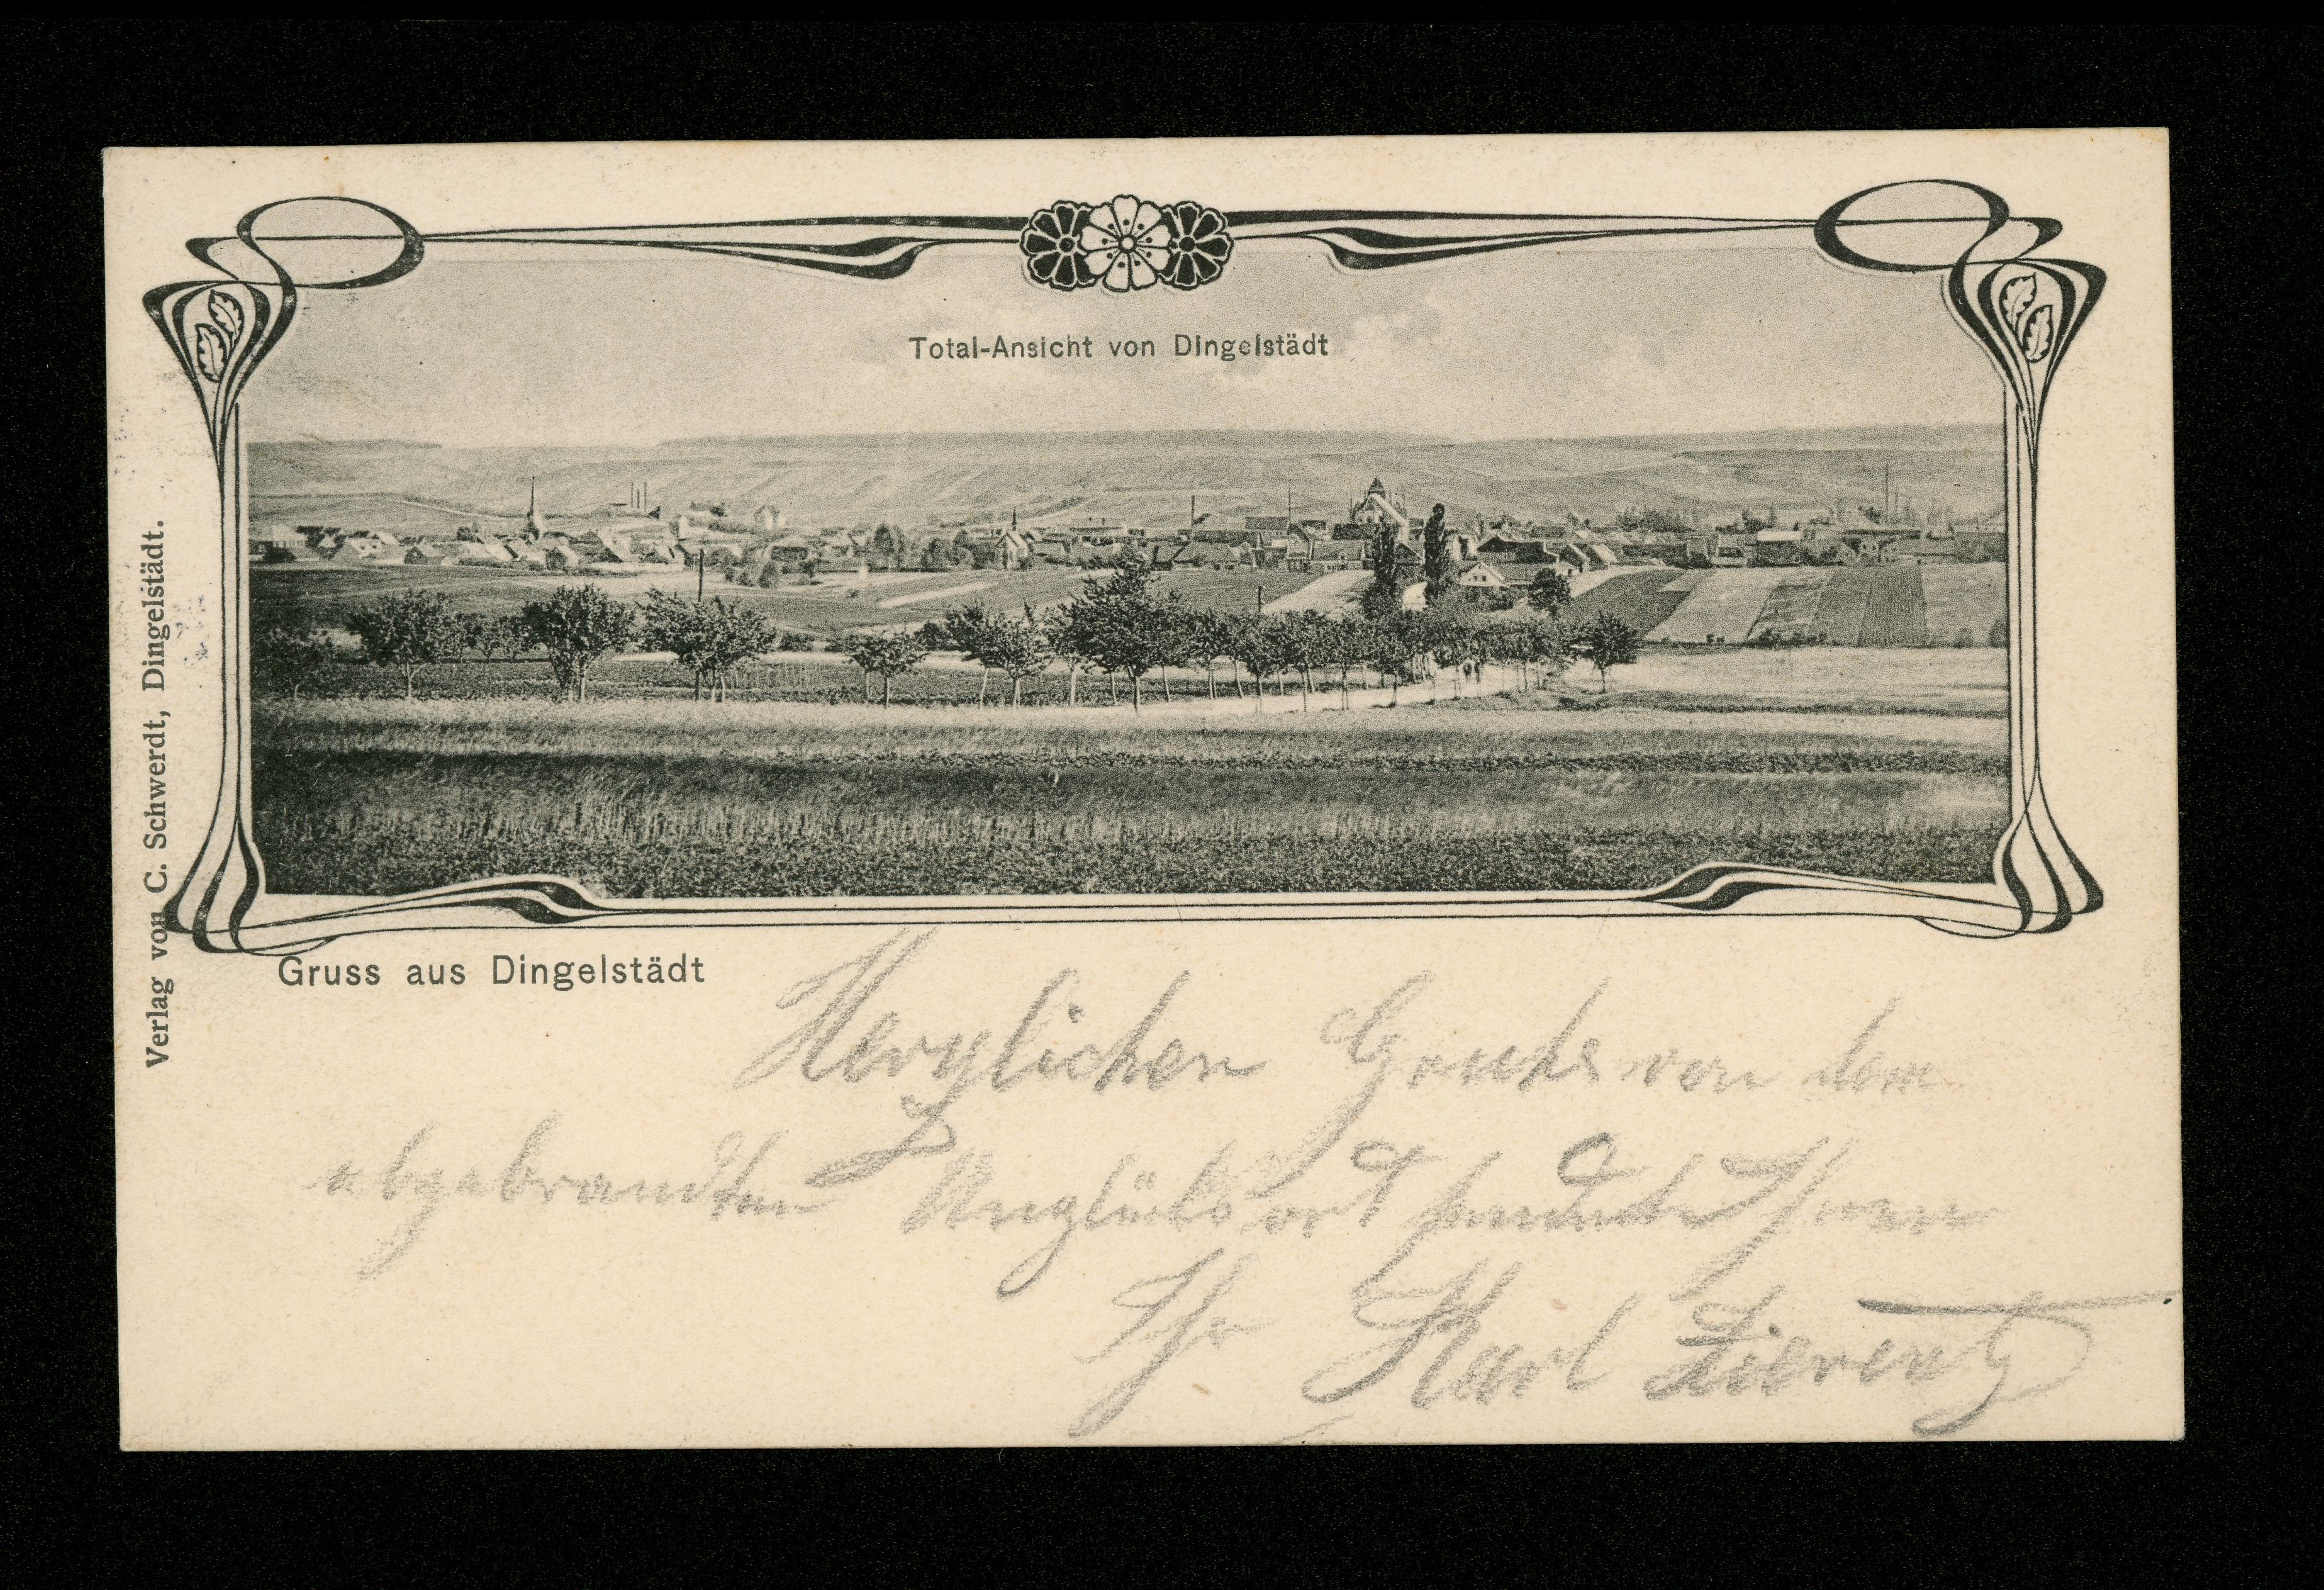 Total-Ansicht von Dingelstädt
Verlag von C. Schwerdt, Dingelstädt.
Gruss aus Dingelstädt
Herzlichen Gruß von dem
abgebrandten Unglücksort sendet Ihnen
Ihr Karl